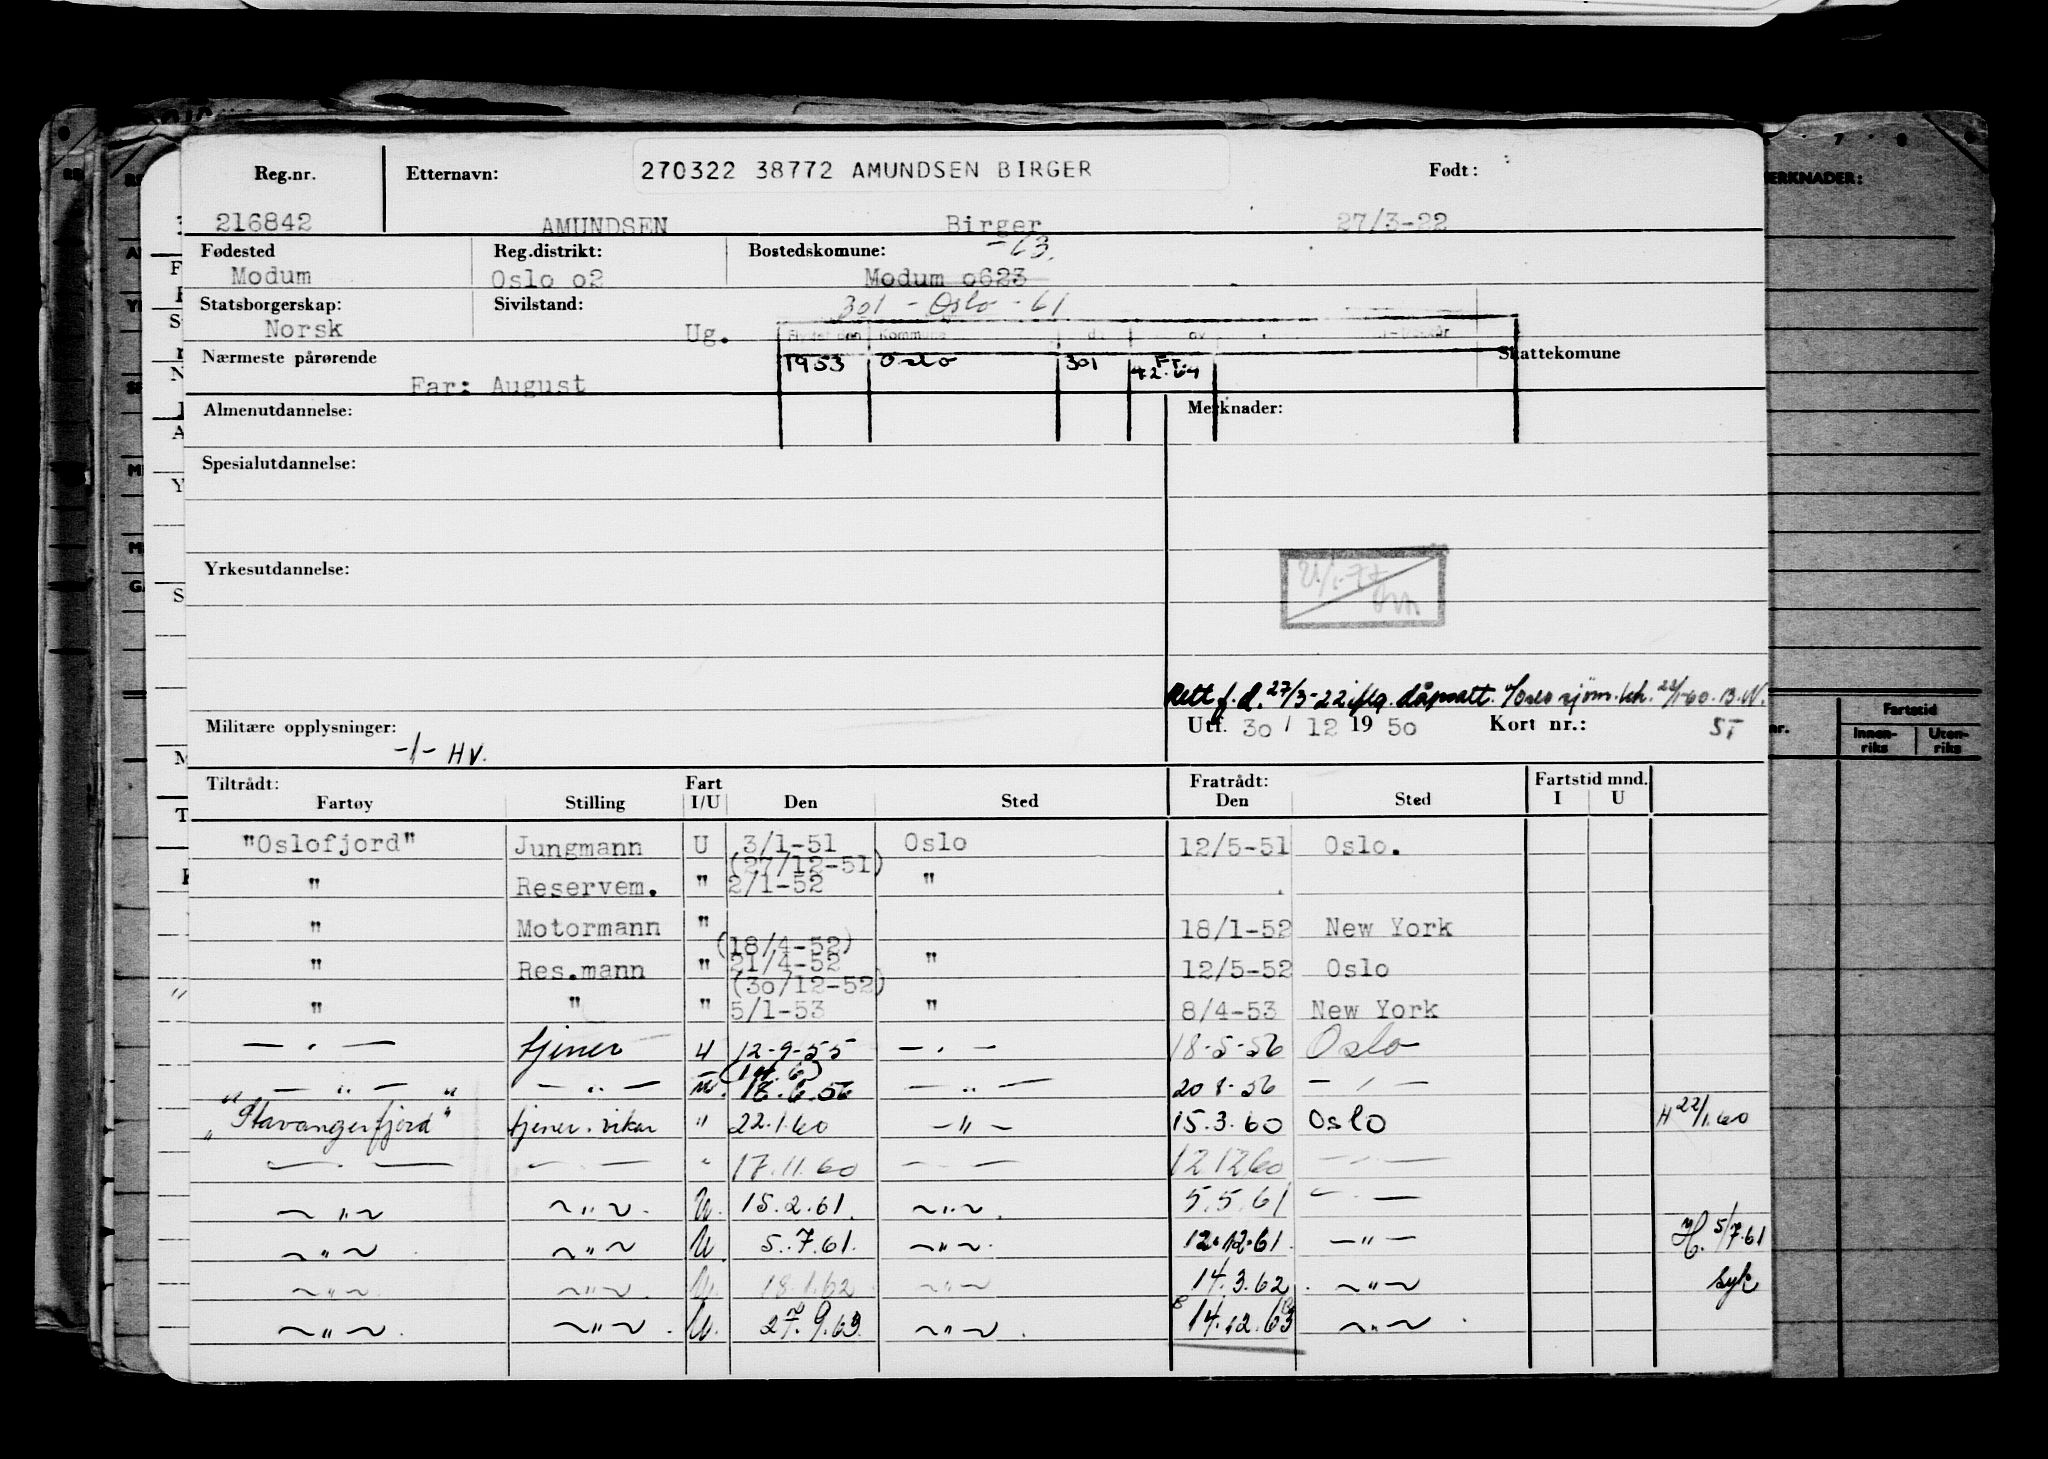 Reg.nr. Etternavn: 270322 38772 AMUNDSEN BIRGER Født:
216842 AMUNDSEN Birger 27/3-22
Fødested Reg.distrikt: Bostedskomune: -63.
Modum Oslo o2 Modum o623
Statsborgerskap: Sivilstand: 301 - Oslo - 61
Norsk Ug. Kommune
Nærmeste pårørende 1953 Oslo 301 Skattekomune
Far: August
Almenutdannelse: Merknader:
Spesialutdannelse:
Yrkesutdannelse:
Rett f.d. 27/3-22 iflg. dåpsatt.
Militære opplysninger: Utf. 30 / 12 19 50 Kort nr.: ST
-/- HV.
Tiltrådt: Fart Fratrådt: Fartstid mnd.
Fartøy Stilling I/U Den Sted Den Sted I U
"Oslofjord" Jungmann U 3/1-51 Oslo 12/5-51 Oslo.
(27/12-51)
" Reservem. " 2/1-52 "
" Motormann " 18/1-52 New York
(18/4-52)
" Res.mann " 21/4-52 " 12/5-52 Oslo
(30/12-52)
" " " 5/1-53 " 8/4-53 New York
— " — tjener U 12-9-55 — " — 18-5-56 Oslo
(14.6)
— " — — " — U. 18.6.56 — " — 20 8-56 — " —
"Stavangerfjord" tjener.vikar " 22.1.60 — " — 15.3.60 Oslo H 22/1.60
— " — — " — " 17.11.60 — " — 12 12 60 — " —
~ " ~ ~ " ~. U. 15.2.61. ~ " ~. 5.5.61 — " —
~ " ~ ~ " ~ U 5.7.61. ~ " ~. 12.12.61. — " — H. 5/7.61
~ " ~ ~ " ~. U. 18.1.62 ~ " ~ 14.3.62. ~ " ~ Syk
~ " ~. ~ " ~. U. 27.9.63. ~ " ~. 14.12.63 ~ " ~.
MERKNADER:
Fartstid
Innen-
riks
Uten-
riks